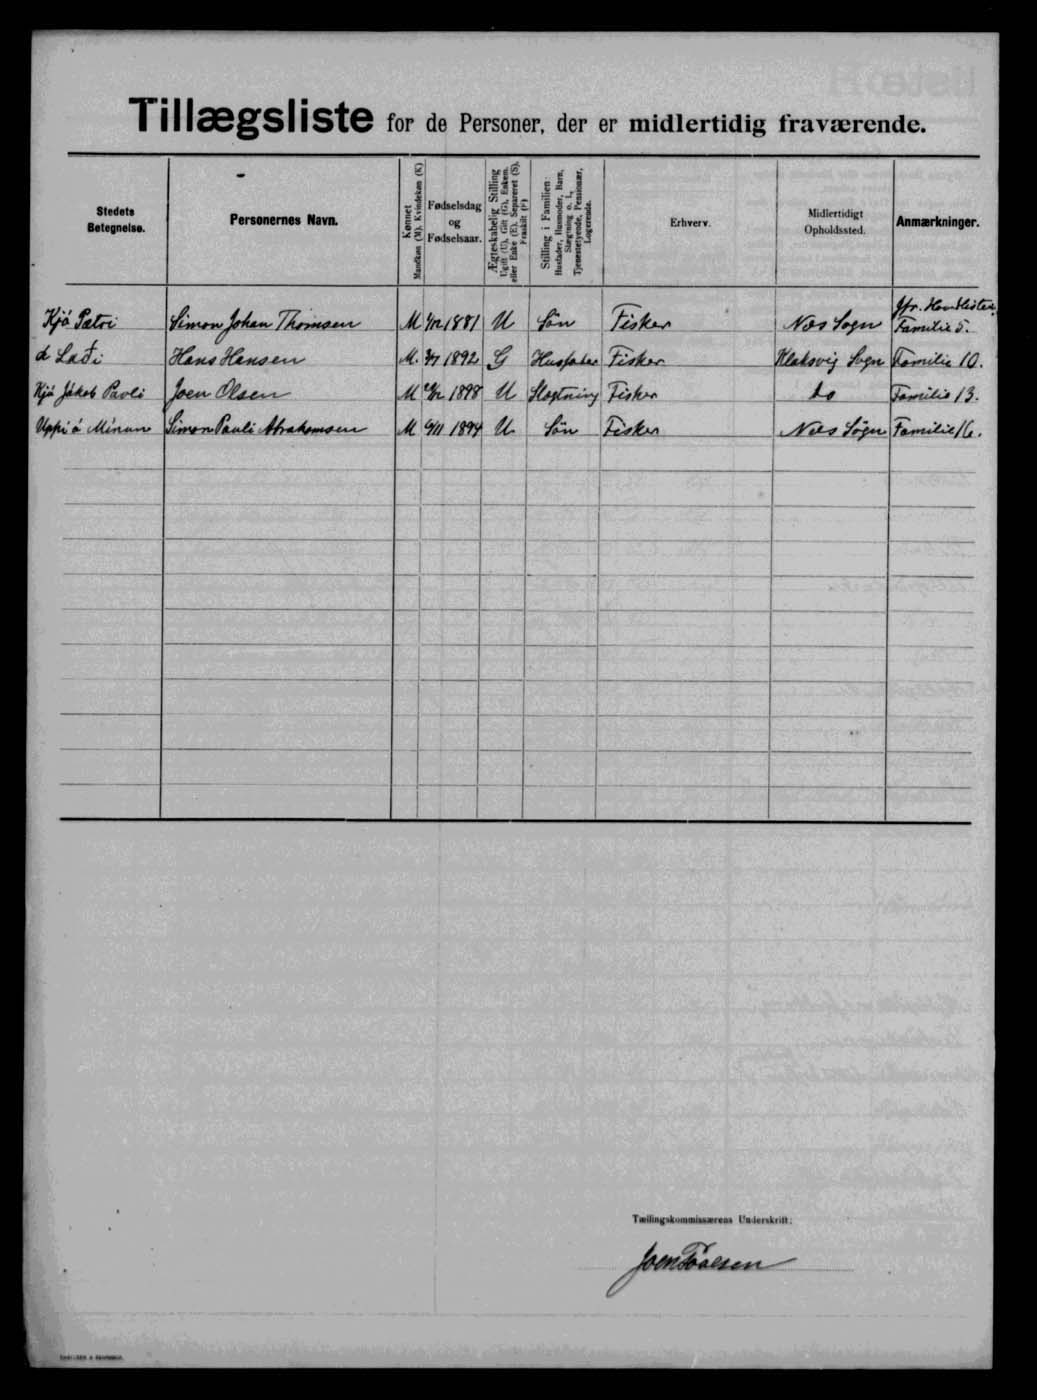 Tillægsliste for de Personer, der er midlertidig fraværende.
Stedets Betegnelse.
Personernes Navn.
Kønnet Mandkøn (M), Kvindekøn (K)
Fødselsdag og Fødselsaar.
Ægteskabelig Stilling Ugift (U), Gift (G), Enkem. eller Enke (E), Separeret (S), Fraskilt (F)
Stilling i Familien Husfader, Husmoder, Barn, Slægtning o. l., Tjenestetyende, Pensionær, Logerende.
Erhverv.
Midlertidigt Opholdssted.
Anmærkninger.
Kjá Pætri Simon Johan Thomsen M 1881 U Sön Fisker Næs Sogn Jfr. Hovedlisten Familie 5.
á Ladi Hans Hansen M. 1892 G Husfader Fisker Klaksvig Sogn Familie 10.
Kjá Jákob Pauli Joen Olsen M 1898 U Slægtning Fisker do Familie 13.
Uppi á Simon Pauli Abrahamsen M 1894 U Sön Fisker Næs Sogn Familie 16.
Tællingskommissærens Underskrift:
Joen Poulsen